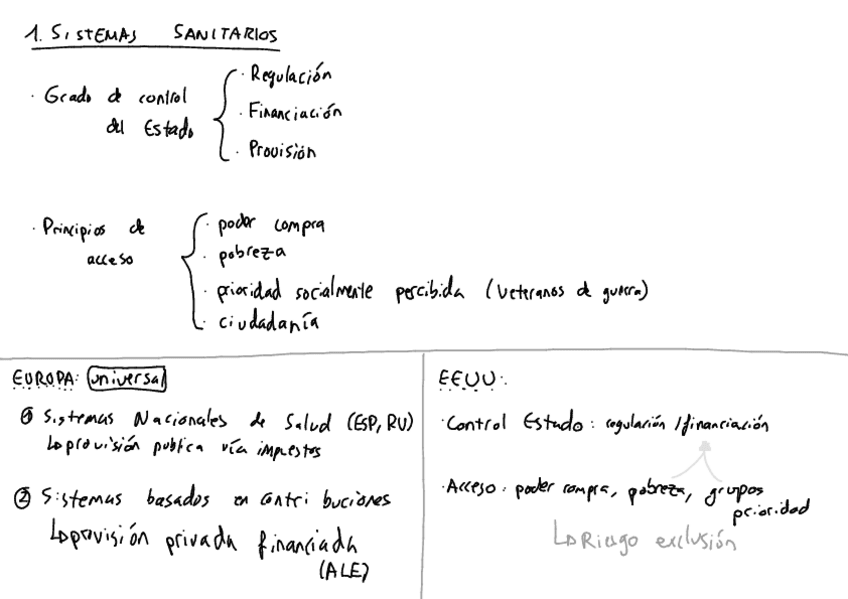 1. SISTEMAS SANITARIOS
· Grado de control
del Estado
· Regulación
· Financiación
· Provisión
· Principios de
acceso
· poder compra
· pobreza
· prioridad socialmente percibida (veteranos de guerra)
· ciudadanía
EUROPA: universal
① Sistemas Nacionales de Salud (ESP, RU)
↳ provisión publica vía impuestos
② Sistemas basados en contribuciones
↳ provisión privada financiada
(ALE)
EEUU:
· Control Estado: regulación / financiación
· Acceso: poder compra, pobreza, grupos
prioridad
↳ Riesgo exclusión